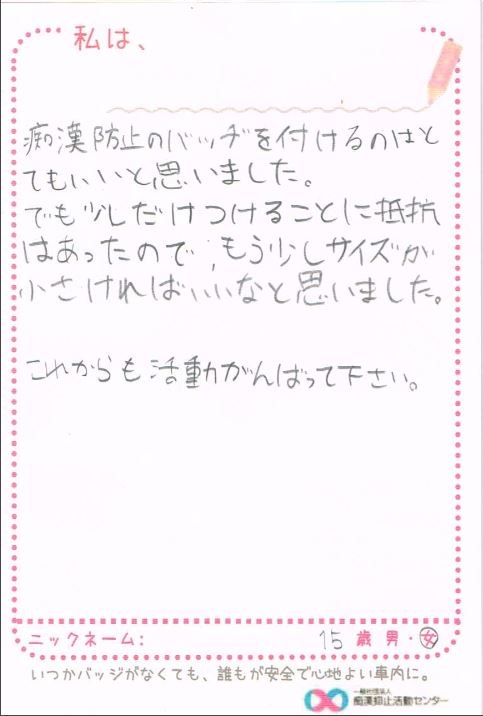 私は、
痴漢防止のバッヂを付けるのはと
てもいいと思いました。
でも少しだけつけることに抵抗
はあったので、もう少しサイズが
小さければいいなと思いました。
これからも活動がんばって下さい。
ニックネーム: 15 歳 男・女
いつかバッジがなくても、誰もが安全で心地よい車内に。
一般社団法人
痴漢抑止活動センター